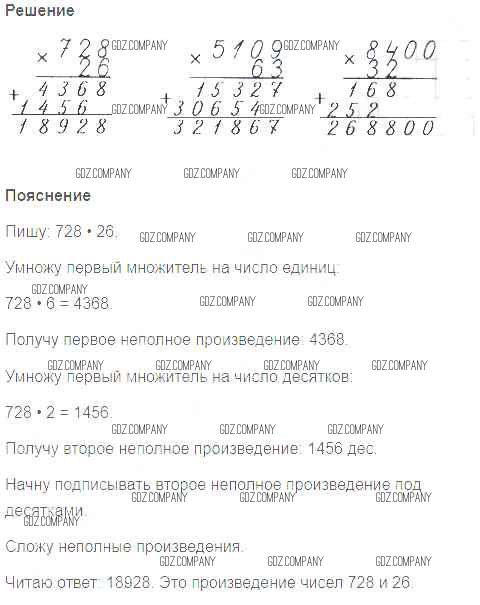 Решение
× 728 GDZ.COMPANY × 5109 GDZ.COMPANY × 8400
26 63 32
+ 4368 + 15327 + 168
1456 GDZ.COMPANY 30654 GDZ.COMPANY 252
18928 321867 268800
GDZ.COMPANY GDZ.COMPANY GDZ.COMPANY
Пояснение
Пишу: 728 • 26.
GDZ.COMPANY GDZ.COMPANY GDZ.COMPANY
Умножу первый множитель на число единиц:
GDZ.COMPANY
728 • 6 = 4368. GDZ.COMPANY GDZ.COMPANY
Получу первое неполное произведение: 4368.
GDZ.COMPANY GDZ.COMPANY GDZ.COMPANY GDZ.COMPANY
Умножу первый множитель на число десятков:
728 • 2 = 1456.
GDZ.COMPANY GDZ.COMPANY GDZ.COMPANY
Получу второе неполное произведение: 1456 дес.
Начну подписывать второе неполное произведение под
GDZ.COMPANY GDZ.COMPANY GDZ.COMPANY
десятками.
GDZ.COMPANY
Сложу неполные произведения.
GDZ.COMPANY GDZ.COMPANY GDZ.COMPANY
Читаю ответ: 18928. Это произведение чисел 728 и 26.